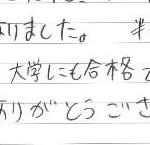 りました。
大学にも合格
りがとうござ